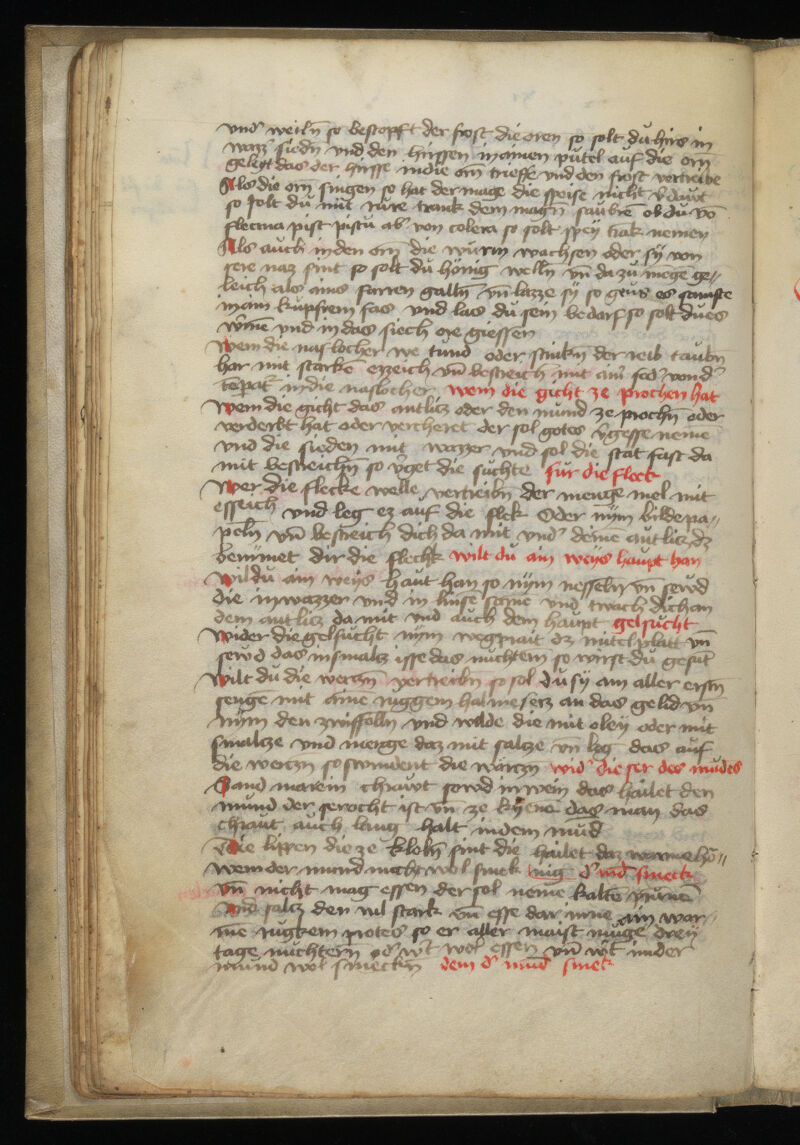 vnd weiln̄ so bestopft der frost die oren so solt du hirs in
wazz̄ siedn̄ vnd den hirssen in ainen pütel auf die orn
gelegt das der hirsse in die orn trieffe vnd den frost vertreibe
Als die orn̄ singen so hat der mage die speise nicht v̄daut
so solt du mit rure trank dem magn̄ saubrē ob du vō
flecma pist pistu ab̓ von colera so solt spey trak nemen
Als auch in den orn̄ die würm wachsen oder sy von
naz sint so solt du hönig welln̄ vn̄ da zu mege ge//
leich als ains farren galln̄ vn̄ lazze sy so geus es sanfte
in ain kupfrein fas vnd las du sein bedarf so solt du es
wͤrme vnd in das siech ore giessen
Wem die naslocher we tund oder stinkn̄ der reib taubn̄
har mit starkē ezzeich vn̄ bestreich mit
in die naslocher wem die gicht ze prochen hat
Wem die gicht das antlicz oder den mund ze prochn̄ oder
verderbt hat oder vercheret der sol gotes v̓gesse nemē
vnd die sieden mit wazzer vnd sol die stat fast da
mit bestreichn̄ so v̓get die süchte für die fleck
Wer die flecke welle vertreibn̄ der menge mel mit
esseich vnd leg ez auf die flek Oder nym bilde pa//
peln̄ vn̄ bestreich dich da mit vnd̓ deinē antlicz dz
benimet dir die flechk wilt du ain weys haupt han
Wildu ain weys haut han so nym nesseln vn̄ sewd
die in wazzer vnd in linse same vnd twach dich an
dem antlicz da mit vnd auch dem haupt gelsucht
Wider die gelsucht nym wegprait dz mittel platt vn̄
sewd das in smalcz isse das nüchtern so wirst du gesūt
Wilt du die werczn̄ vertreibn so sol du sy am aller erstn̄
senge mit aine ruggem halme secz an das gelid vn̄
nym den zwiffolln vnd walde die mit oley oder mit
smalcze vnd menge daz mit salcze vn̄ leg das auf
die werczn so swindent die warczn wid̓ die ser des mūdes
Sand marein chrawt sewd in wein das hailet den
mund der serocht ist vn̄ ze kyene das man das
chraut auch lang halt in dem mūd
Die lippen die ze klobn̄ sint die hailet daz warme hö//
Wem der mund nicht wol smek nig d̓ mūd smeck
vn̄ nicht mag essen der sol neme kaltē prūnē
vnd salcz den vil stark vn̄ esse dar inne ain war
me rugkem protes so er aller maist muge drey
tage nüchtern od̓ wͭ wol essen vn̄ wͭ im der
mund wol smeckn̄ dem d̓ mūd smek